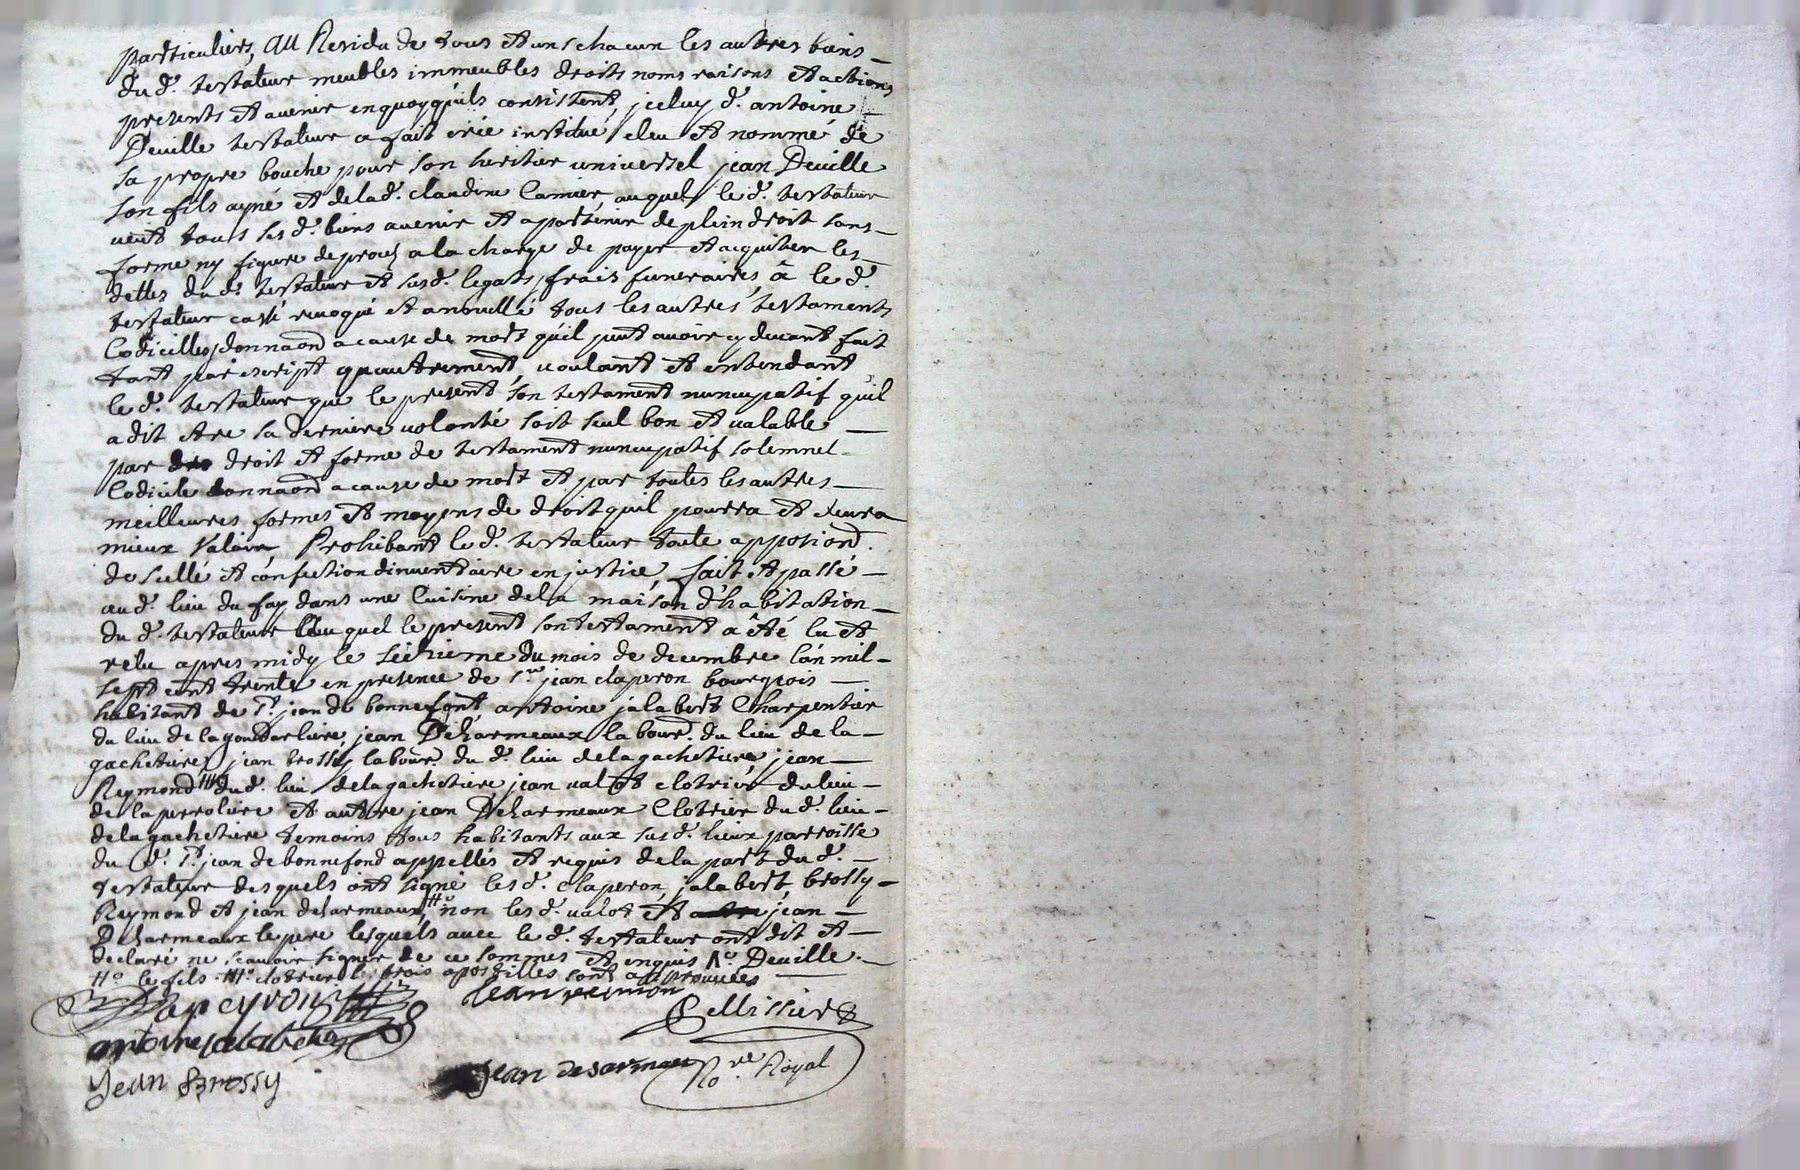 particuliers, au Residu de tous et uns chacun les autres biens
du d.t testateur meubles immeubles droits noms raisons et actions
presents et avenir enquoyquils consistent, jceluy d.t antoine
Deville testateur a fait crée institué eleu et nommé de
sa propre bouche pour son heritier universel jean Deville
son fils ayné et delad.e claudine Camier, auquel le d.t testateur
veut tous ses d.ts biens avenir et apartenir de plein droit sans
forme ny figure de procez a la charge de payer et acquiter les
dettes dud.t testateur et susd.ts legats, frais funeraires, â le d.t
testateur cassé revoqué et annullé tous les autres testaments
Codicilles, donnaõn a cause de mort quil peut avoir cy devant fait
tant par escript quautrement, voulant et entendant
le d.t testateur que le present son testament nuncupatif quil
a dit etre sa derniere volonté soit seul bon et valable
par droit et forme de testament nuncupatif solemnel
Codicile donnaõn a cause de mort et par toutes les autres
meilleures formes et moyens de droit quil pourra et devra
mieux Valoir, Prohibant le d.t testateur toute apposiõn
de scellé et confection dinventaire en justice, fait et passé
aud.t lieu du fay dans une Cuisine dela maison d'habitation
du d.t testateur auquel le present son testament a êté lu et
relu apres midy le seizieme du mois de decembre lan mil
sept cent trente en presence de s.r jean claperon bourgeois
habitant de S.t jean de bonnefont antoine jalabert Charpentier
du lieu de la jean Decharmeaux labour. du lieu de la
gachetiere jean brossy labour. du d.t lieu dela gachetiere jean
Reymond dud.t lieu dela gachetiere jean valot clotrier du lieu
de la perroliere et autre jean Decharmeaux Clotrier du d.t lieu
dela gachetiere temoins tous habitants aux susd.ts lieux parroisse
du d.t S.t jean de bonnefond appellés et requis dela part du d.t
testateur desquels ont signé lesd.ts claperon, jalabert, brossy
Reymond et jean decharmeaux non lesd.ts valot et jean
Decharmeaux le pere lesquels avec le d.t testateur ont dit et
declaré ne scavoir signer de ce sommés et enquis Deville
le fils clotrier les trois apostilles sont approuvées
Jean reimon
Pellissier
antoine jalabert
jean desarmau
No.re Royal
Jean Brossy